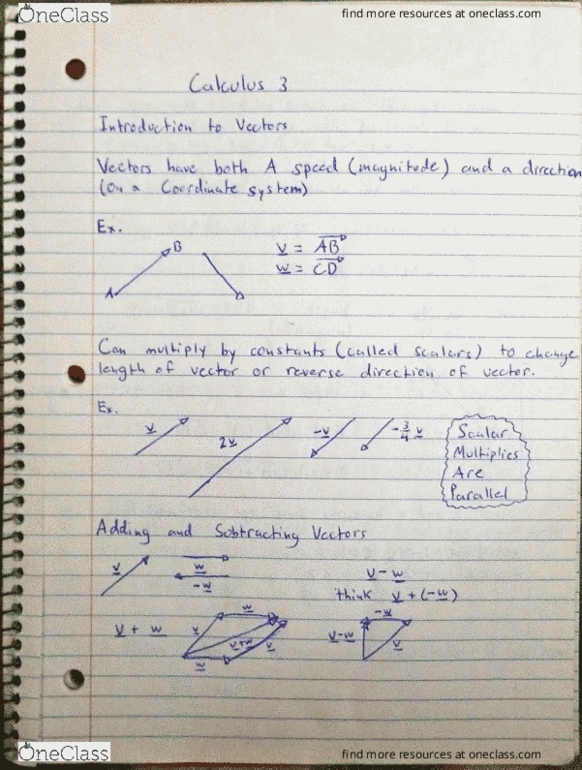 OneClass
find more resources at oneclass.com
Calculus 3
Introduction to Vectors
Vectors have both A speed (magnitude) and a direction
(on a Coordinate system)
Ex.
A B
v = AB
w = CD
Can multiply by constants (called scalars) to change
length of vector or reverse direction of vector.
Ex.
v 2v -v -3/4 v
Scalar
Multiplies
Are
Parallel
Adding and Subtracting Vectors
v w
-w
v - w
think v + (-w)
v + w
v w v+w v w
v-w -w v
OneClass
find more resources at oneclass.com